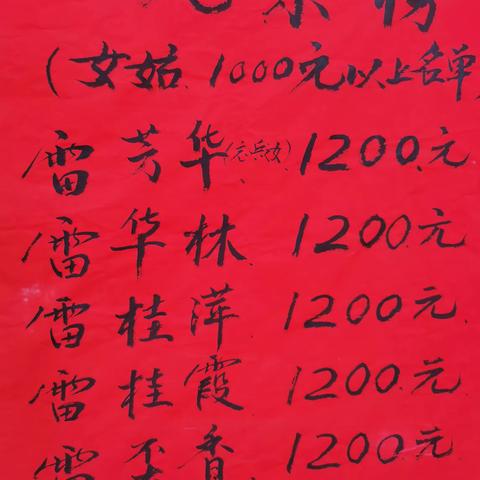 (女姑、1000元以上名单)
雷芳华(元兵女)、1200.元
雷华林、1200.元
雷桂萍 1200元
雷桂霞 1200.元
雷 香 1200元